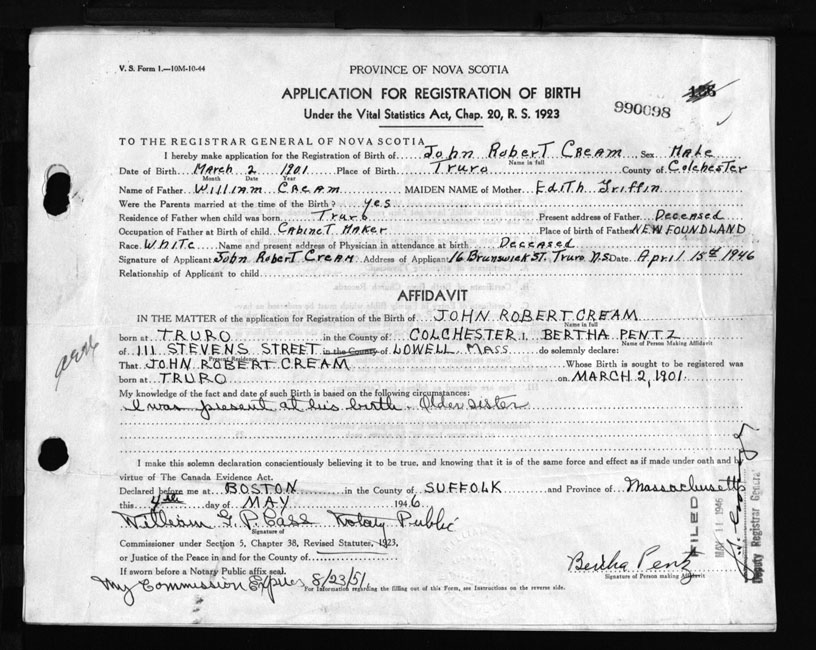 V. S. Form 1.—10M-10-44
PROVINCE OF NOVA SCOTIA
APPLICATION FOR REGISTRATION OF BIRTH
Under the Vital Statistics Act, Chap. 20, R. S. 1923
990098
TO THE REGISTRAR GENERAL OF NOVA SCOTIA
I hereby make application for the Registration of Birth of John Robert Cream Sex Male
Name in full
Date of Birth March 2 1901 Place of Birth Truro County of Colchester
Month Date Year
Name of Father William Cream MAIDEN NAME of Mother Edith Griffin
Were the Parents married at the time of the Birth? yes
Residence of Father when child was born Truro Present address of Father Deceased
Occupation of Father at Birth of child Cabinet Maker Place of birth of Father NEWFOUNDLAND
Race White Name and present address of Physician in attendance at birth Deceased
Signature of Applicant John Robert Cream Address of Applicant 16 Brunswick St. Truro N.S Date April 15th 1946
Relationship of Applicant to child
AFFIDAVIT
IN THE MATTER of the application for Registration of the Birth of JOHN ROBERT CREAM
Name in full
born at TRURO in the County of COLCHESTER I, BERTHA PENTZ
Name of Person Making Affidavit
of 111 STEVENS STREET in the County of LOWELL MASS do solemnly declare:
Present Residence
That JOHN ROBERT CREAM Whose Birth is sought to be registered was
born at TRURO on MARCH 2, 1901.
My knowledge of the fact and date of such Birth is based on the following circumstances:
I was present at his birth. Older sister
I make this solemn declaration conscientiously believing it to be true, and knowing that it is of the same force and effect as if made under oath and by
virtue of The Canada Evidence Act.
Declared before me at BOSTON in the County of SUFFOLK and Province of Massachusetts
this 4th day of MAY 1946
William G. P. Case Notary Public
Signature of
Commissioner under Section 5, Chapter 38, Revised Statutes, 1923,
or Justice of the Peace in and for the County of
If sworn before a Notary Public affix seal.
Bertha Pentz
Signature of Person making Affidavit
My Commission Expires 8/23/51.
For Information regarding the filling out of this Form, see Instructions on the reverse side.
FILED
MAY 11 1946
Deputy Registrar General